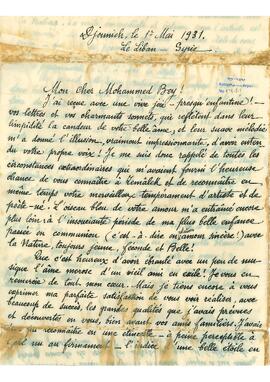 Djounieh, le 1er Mai 1931.
Le Liban - Syrie
Mon Cher Mohammed Bey!
J'ai reçue avec une vive joie - presqu'enfantine! -
vos lettres et vos charmants sonnets, qui reflètent dans leur
limpidité la candeur de votre belle âme, et leur suave mélodie
m'a donné l'illusion, vraiment impressionnante, d'avoir entendu
votre propre voix! Je me suis donc rappelé de toutes les
circonstances extraordinaires qui m'avaient fourni l'heureuse
chance de vous connaître à Remâleh et de reconnaître en
même temps votre merveilleux tempérament d'artiste et de
poète - né. L'oiseau bleu de votre amour m'a entraîné encore
plus loin à l'insouciante période de ma plus belle enfance
passée en communion (c'est-à-dire en amour sincère) avec
la Nature, toujours jeune, féconde et Belle!
Que c'est heureux d'avoir chanté avec un peu de mu-
sique l'âme morose d'un vieil ami en exile! Je vous en
remercie de tout mon cœur. Mais je tiens encore à vous
exprimer ma parfaite satisfaction de vous voir réaliser, avec
beaucoup de succès, les grandes qualités que j'avais prévues
et découvertes en vous, bien avant vos amis familiers. J'avais
pu reconnaître en une étincelle - à peine perceptible à
l'œil nu au firmament - l'indice d'une belle étoile en